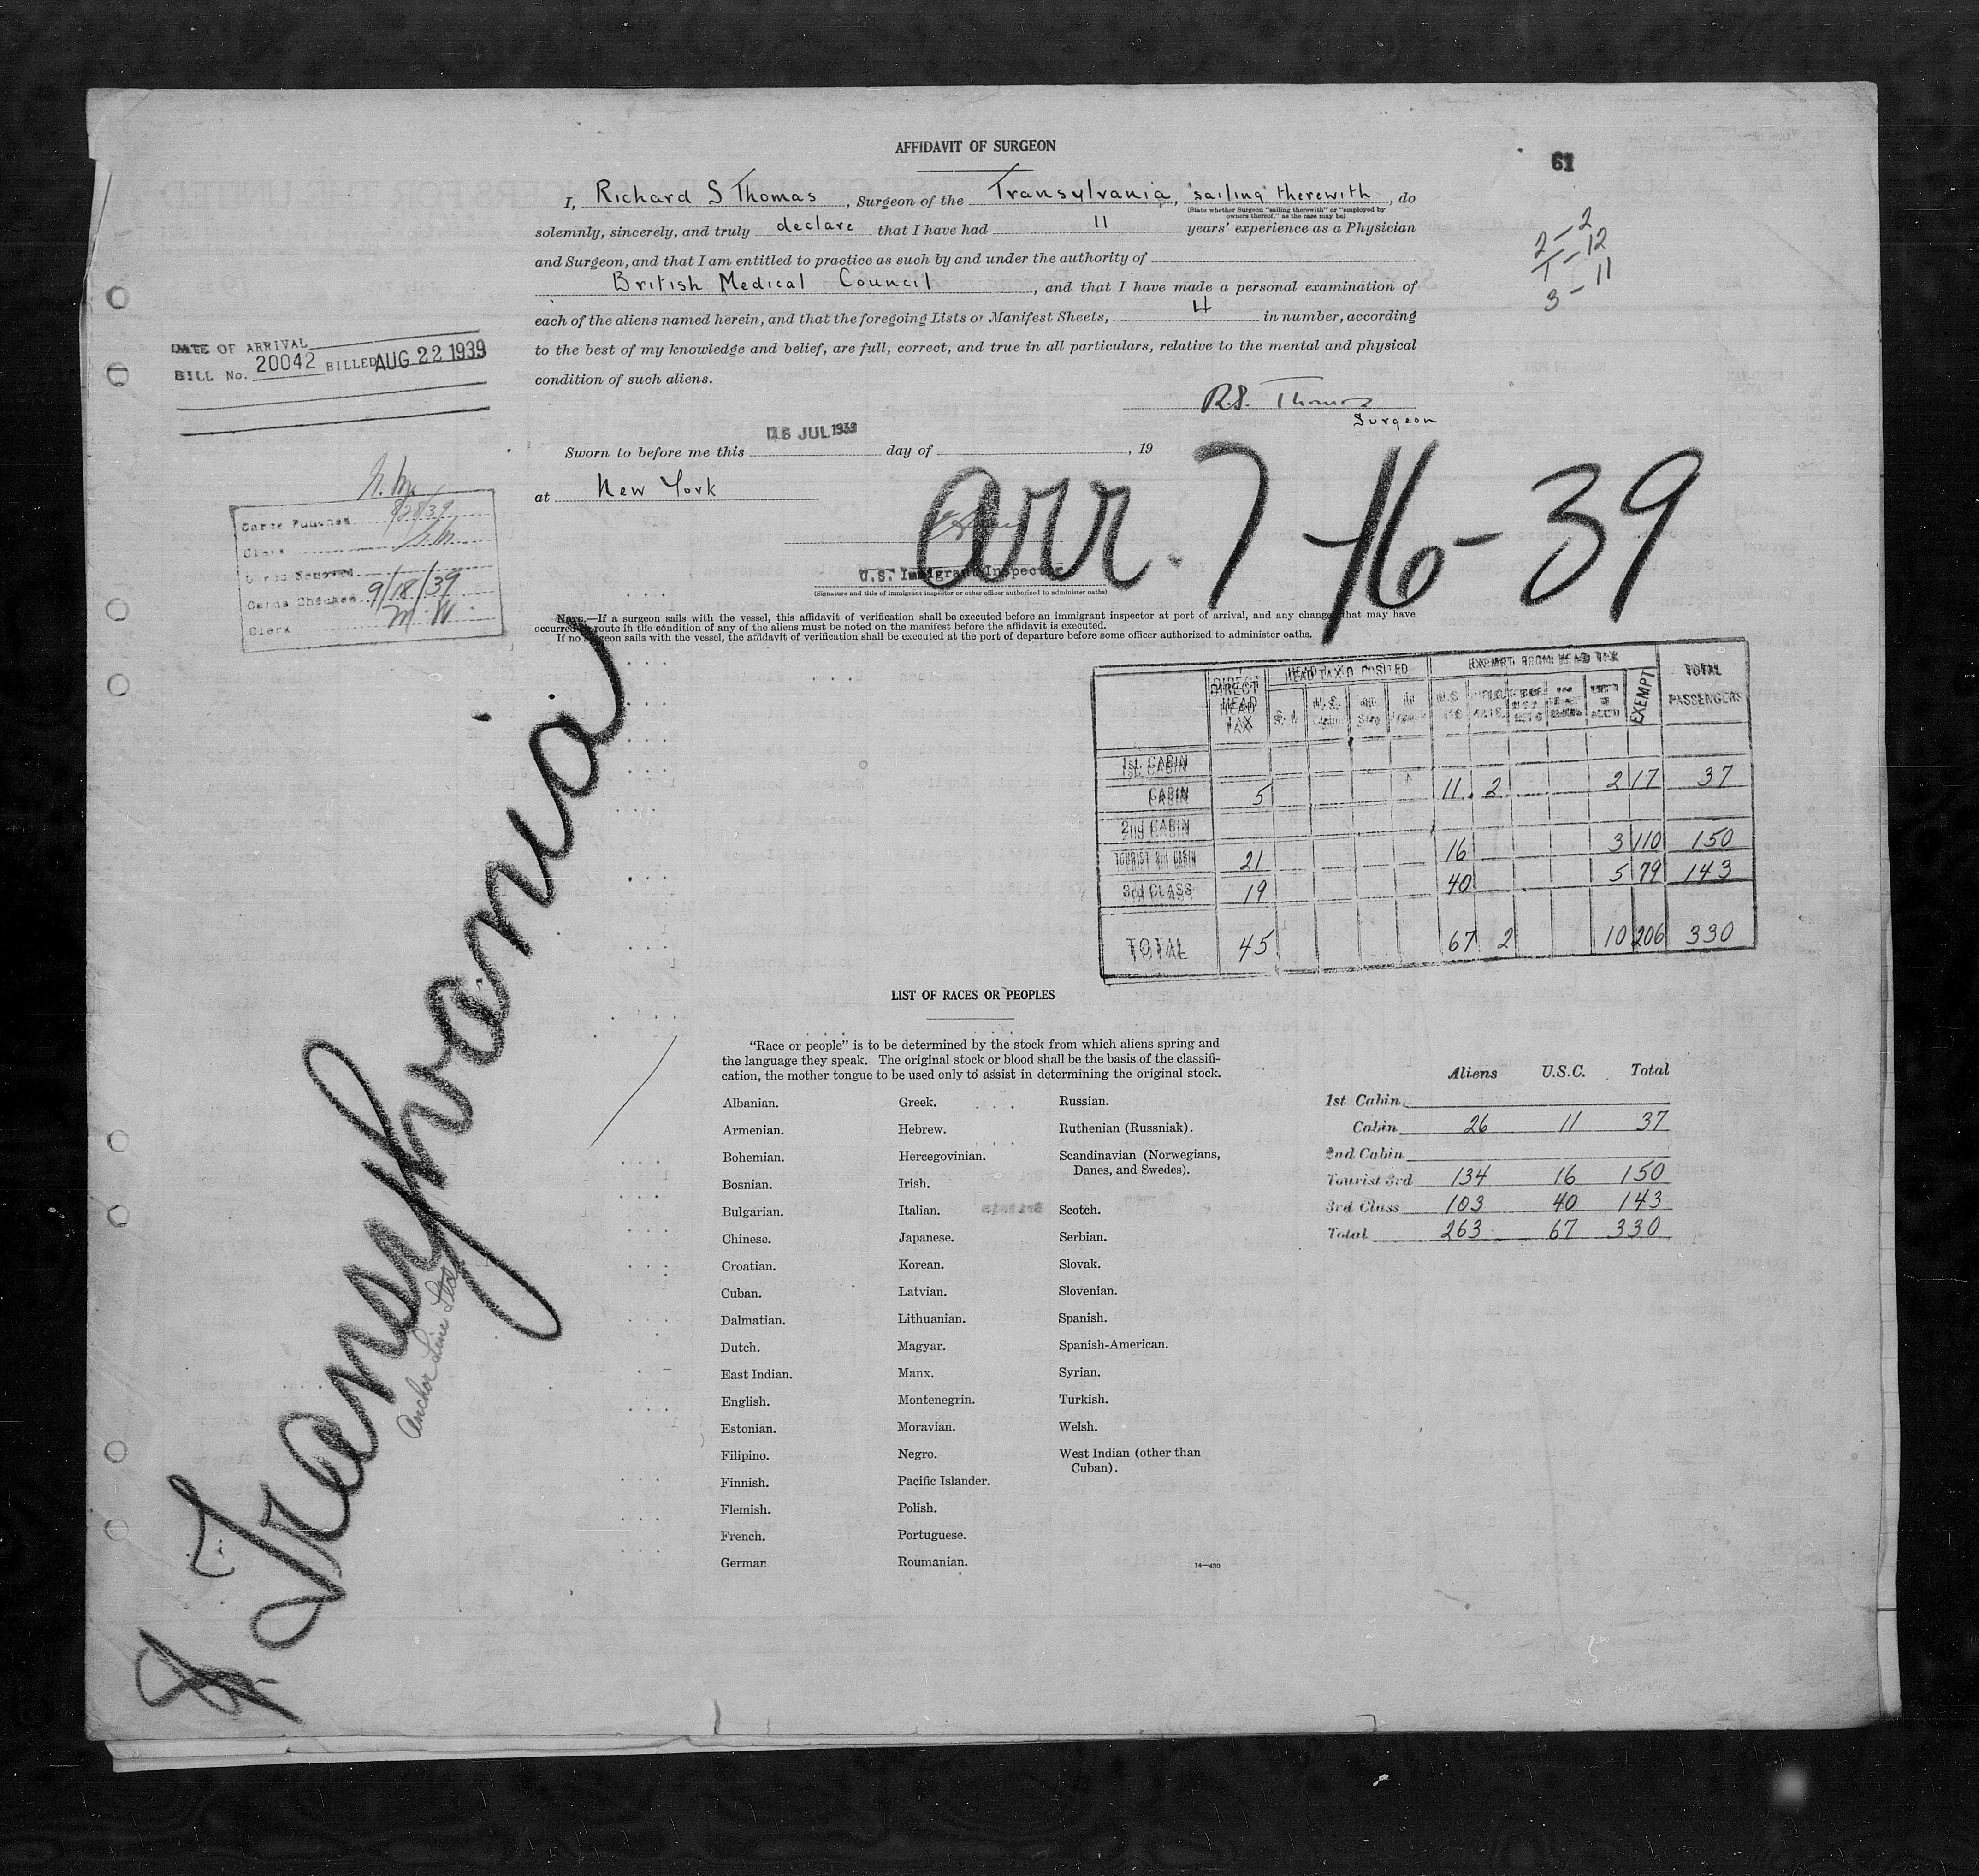 AFFIDAVIT OF SURGEON
61
I, Richard S Thomas, Surgeon of the Transylvania, "sailing therewith, do
(State whether Surgeon "sailing therewith" or "employed by
owners thereof," as the case may be)
solemnly, sincerely, and truly declare that I have had 11 years' experience as a Physician
and Surgeon, and that I am entitled to practice as such by and under the authority of
British Medical Council, and that I have made a personal examination of
each of the aliens named herein, and that the foregoing Lists or Manifest Sheets, 4 in number, according
to the best of my knowledge and belief, are full, correct, and true in all particulars, relative to the mental and physical
condition of such aliens.
2-2
1-12
3-11
DATE OF ARRIVAL
BILL No. 20042 BILLED AUG 22 1939
R.S. Thomas
Surgeon
16 JUL 1939
Sworn to before me this day of , 19
at New York
arr. 7-16-39
U.S. Immigrant Inspector
(Signature and title of immigrant inspector or other officer authorized to administer oaths)
Cards Punched 8/28/39
Clerk
Cards Checked 9/18/39
Clerk M.W.
NOTE.—If a surgeon sails with the vessel, this affidavit of verification shall be executed before an immigrant inspector at port of arrival, and any change that may have
occurred en route in the condition of any of the aliens must be noted on the manifest before the affidavit is executed.
If no surgeon sails with the vessel, the affidavit of verification shall be executed at the port of departure before some officer authorized to administer oaths.
DIRECT HEAD TAX HEAD TAX DEPOSITED EXEMPT FROM HEAD TAX EXEMPT TOTAL PASSENGERS
1st. CABIN
CABIN 5 11 2 2 17 37
2nd CABIN
TOURIST 3rd CABIN 21 16 3 110 150
3rd CLASS 19 40 5 79 143
TOTAL 45 67 2 10 206 330
Transylvania
Anchor Line Ltd
LIST OF RACES OR PEOPLES
"Race or people" is to be determined by the stock from which aliens spring and
the language they speak. The original stock or blood shall be the basis of the classifi-
cation, the mother tongue to be used only to assist in determining the original stock.
Albanian.
Armenian.
Bohemian.
Bosnian.
Bulgarian.
Chinese.
Croatian.
Cuban.
Dalmatian.
Dutch.
East Indian.
English.
Estonian.
Filipino.
Finnish.
Flemish.
French.
German
Greek.
Hebrew.
Hercegovinian.
Irish.
Italian.
Japanese.
Korean.
Latvian.
Lithuanian.
Magyar.
Manx.
Montenegrin.
Moravian.
Negro.
Pacific Islander.
Polish.
Portuguese.
Roumanian.
Russian.
Ruthenian (Russniak).
Scandinavian (Norwegians,
Danes, and Swedes).
Scotch.
Serbian.
Slovak.
Slovenian.
Spanish.
Spanish-American.
Syrian.
Turkish.
Welsh.
West Indian (other than
Cuban).
14—430
Aliens U.S.C. Total
1st Cabin
Cabin 26 11 37
2nd Cabin
Tourist 3rd 134 16 150
3rd Class 103 40 143
Total 263 67 330